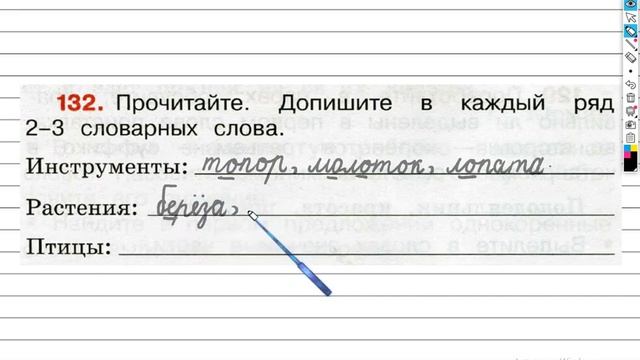 132. Прочитайте. Допишите в каждый ряд
2–3 словарных слова.
Инструменты: топор, молоток, лопата.
Растения: берёза,
Птицы: